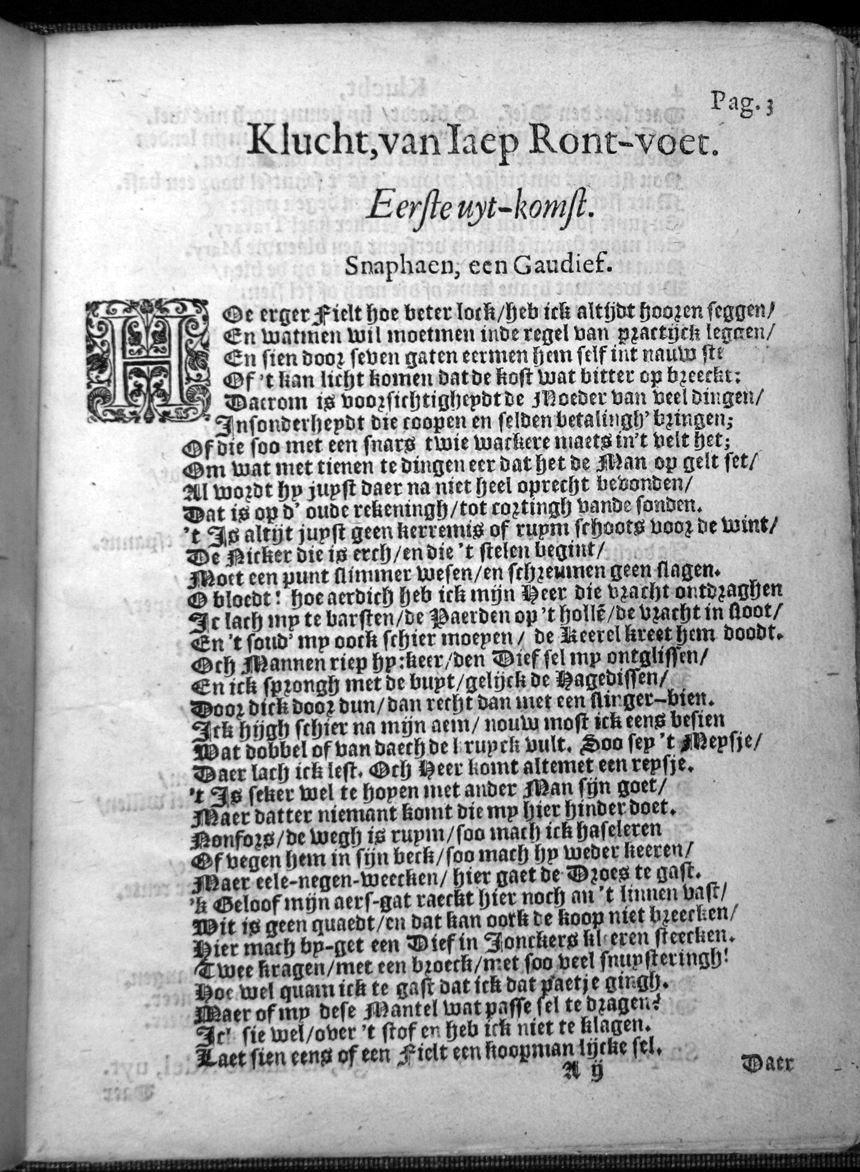 Pag. 3
Klucht, van Iaep Ront-voet.
Eerste uyt-komst.
Snaphaen, een Gaudief.
HOe erger Fielt hoe beter lock/heb ick altijdt hooren seggen/
En watmen wil moetmen inde regel van practijck leggen/
En sien door seven gaten eermen hem self int nauw
Of 't kan licht komen dat de kost wat bitter op breeckt:
Daerom is voorsichtigheydt de Moeder van veel dingen/
Insonderheydt die coopen en selden betalingh' bringen;
Of die soo met een snars twie wackere maets in't velt het;
Om wat met tienen te dingen eer dat het de Man op gelt set/
Al wordt hy juyst daer na niet heel oprecht bevonden/
Dat is op d' oude rekeningh/tot cortingh vande sonden.
't Is altijt juyst geen kerremis of ruym schoots voor de wint/
De Nicker die is erch/en die 't stelen begint/
Moet een punt slimmer wesen/en schreumen geen slagen.
O bloedt! hoe aerdich heb ick mijn Heer die vracht ontdraghen
Ic lach my te barsten/de Paerden op 't hollē/de vracht in sloot/
En 't soud' my oock schier moeyen/ de Keerel kreet hem doodt.
Och Mannen riep hy:keer/den Dief sel my ontglissen/
En ick sprongh met de buyt/gelijck de Hagedissen/
Door dick door dun/dan recht dan met een slinger-bien.
Ick hijgh schier na mijn aem/ nouw most ick eens besien
Wat dobbel of van daech de kruyck vult. Soo sey 't Meysje/
Daer lach ick lest. Och Heer komt altemet een reysje.
't Is seker wel te hopen met ander Man sijn goet/
Maer datter niemant komt die my hier hinder doet.
Nonfors/de wegh is ruym/soo mach ick haseleren
Of vegen hem in sijn beck/soo mach hy weder keeren/
Maer eele-negen-weecken/ hier gaet de Droes te gast.
'k Geloof mijn aers-gat raeckt hier noch an 't linnen vast/
Wit is geen quaedt/en dat kan oock de koop niet breecken/
Hier mach by-get een Dief in Jonckers kleeren steecken.
Twee kragen/met een broeck/met soo veel snuysteringh!
Hoe wel quam ick te gast dat ick dat paetje gingh.
Maer of my dese Mantel wat passe sel te dragen?
Ick sie wel/over 't stof en heb ick niet te klagen.
Laet sien eens of een Fielt een koopman lijcke sel.
A ij
Daer